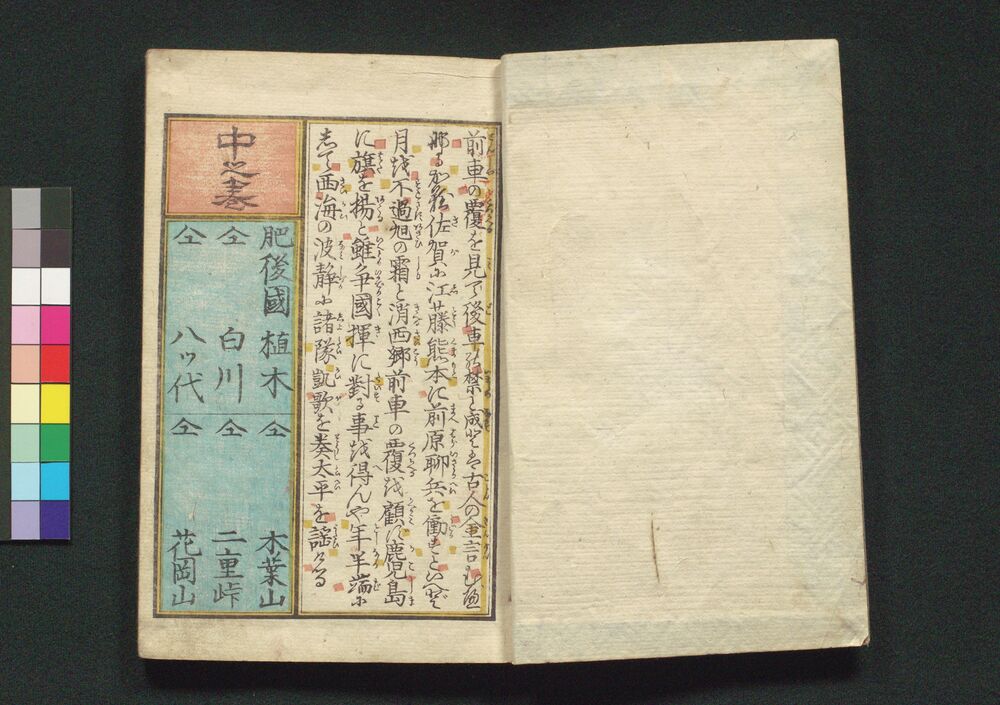 前車の覆を見て後車の禁と成とは古人の金言むべ
なるかな佐賀に江藤熊本に前原聊兵を働すといへど
月を不過旭の霜と消西郷前車の覆を顧ず鹿児島
に旗を揚と雖争國揮に對る事を得んや年半端に
して西海の波静に諸隊凱歌を奏太平を謡ける
中之巻
肥後國 植木 仝 木葉山
仝 白川 仝 二重峠
仝 八ツ代 仝 花岡山